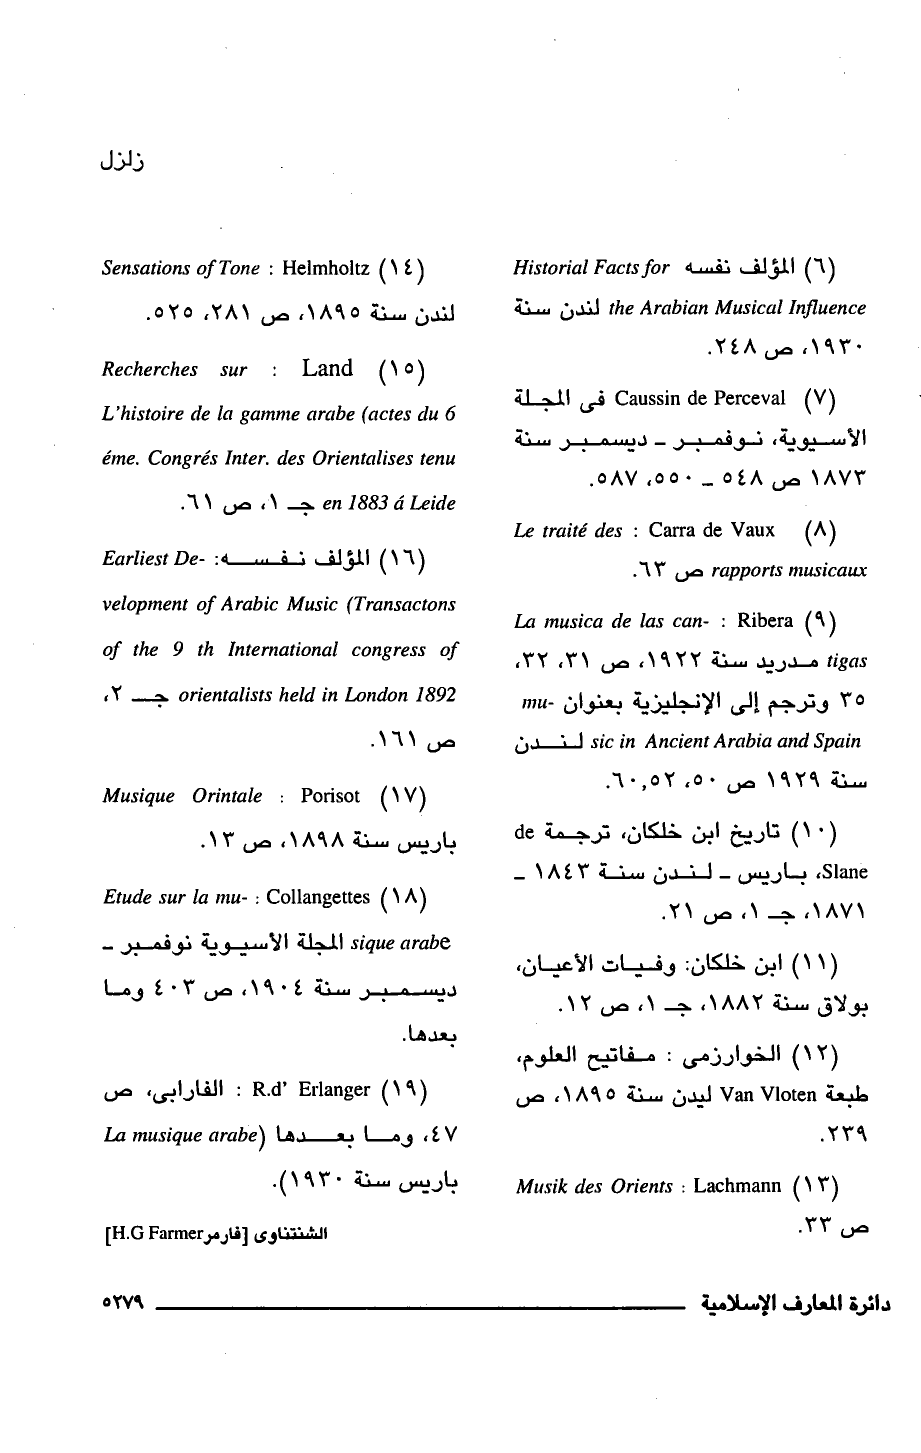 زلزل
(٦) المؤلف نفسه Historial Facts for
the Arabian Musical Influence لندن سنة
١٩٣٠، ص ٢٤٨.
(٧) Caussin de Perceval فى المجلة
الأسيوية، نوفمبر - ديسمبر سنة
١٨٧٣ ص ٥٤٨ - ٥٥٠، ٥٨٧.
(٨) Carra de Vaux : Le traité des
rapports musicaux ص ٦٣.
(٩) Ribera : La musica de las can-
tigas مدريد سنة ١٩٢٢، ص ٣١، ٣٢،
٣٥ وترجم إلى الإنجليزية بعنوان mu-
sic in Ancient Arabia and Spain لندن
سنة ١٩٢٩ ص ٥٠، ٥٢,٦٠.
(١٠) تاريخ ابن خلكان، ترجمة de
Slane، باريس - لندن سنة ١٨٤٣ -
١٨٧١، جـ ١، ص ٢١.
(١١) ابن خلكان: وفيات الأعيان،
بولاق سنة ١٨٨٢، جـ ١، ص ١٢.
(١٢) الخوارزمى : مفاتيح العلوم،
طبعة Van Vloten ليدن سنة ١٨٩٥، ص
٢٣٩.
(١٣) Lachmann : Musik des Orients
ص ٣٣.
(١٤) Helmholtz : Sensations of Tone
لندن سنة ١٨٩٥، ص ٢٨١، ٥٢٥.
(١٥) Land : Recherches sur
L'histoire de la gamme arabe (actes du 6
éme. Congrés Inter. des Orientalises tenu
en 1883 á Leide جـ ١، ص ٦١.
(١٦) المؤلف نفسه: Earliest De-
velopment of Arabic Music (Transactons
of the 9 th International congress of
orientalists held in London 1892 جـ ٢،
ص ١٦١.
(١٧) Porisot : Musique Orintale
باريس سنة ١٨٩٨، ص ١٣.
(١٨) Collangettes : Etude sur la mu-
sique arabe المجلة الأسيوية نوفمبر -
ديسمبر سنة ١٩٠٤، ص ٤٠٣ وما
بعدها.
(١٩) R.d' Erlanger : الفارابى، ص
٤٧، وما بعدها (La musique arabe
باريس سنة ١٩٣٠).
الشنتناوى [فارمر H.G Farmer]
دائرة المعارف الإسلامية ٥٢٧٩